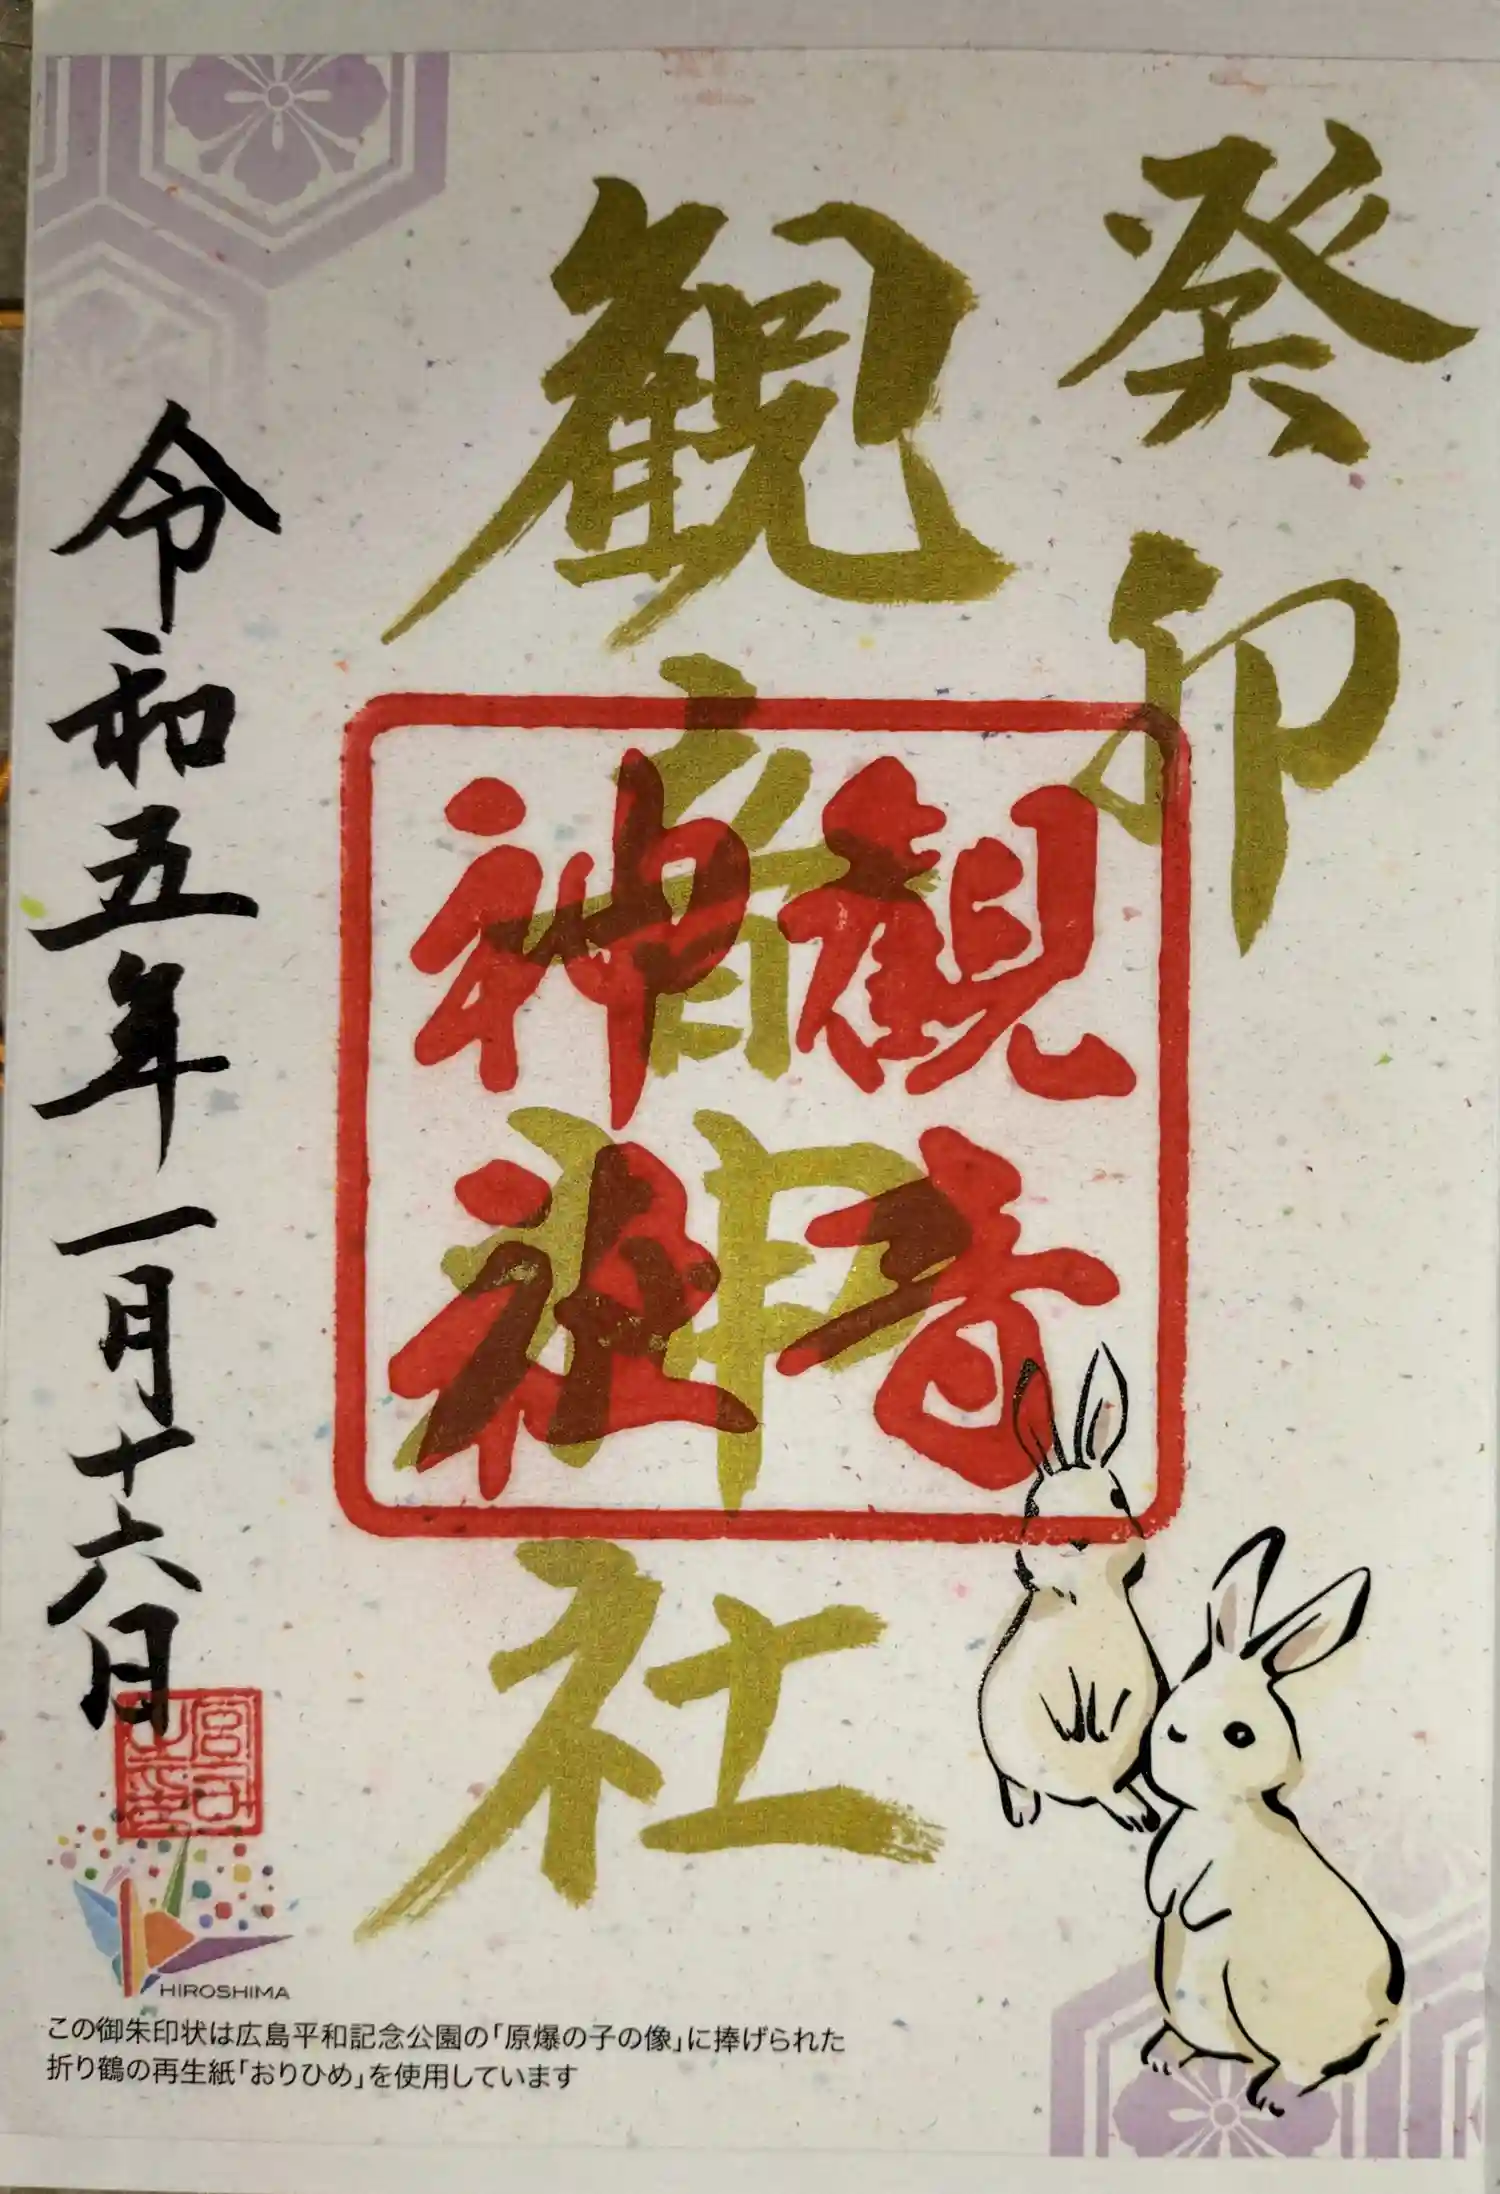 癸卯
観音神社
観音
神社
令和五年一月十六日
宮司
HIROSHIMA
この御朱印状は広島平和記念公園の「原爆の子の像」に捧げられた
折り鶴の再生紙「おりひめ」を使用しています